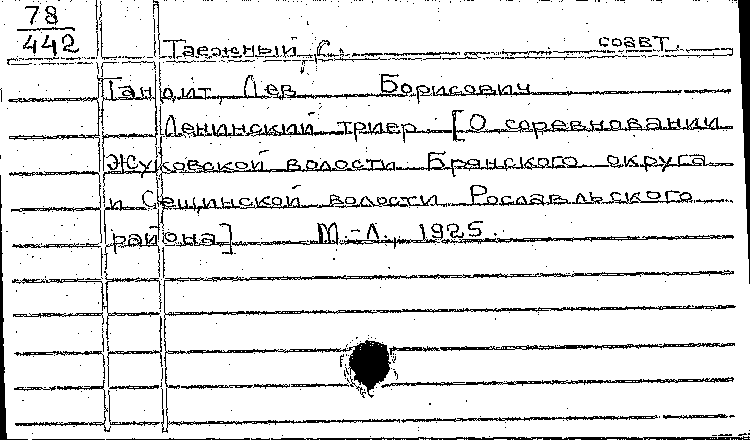 78
442
Таежный, С. соавт.
Лев Борисович
Ленинский триер [О соревновании
Жуковской волости Брянского округа
и Сещинской волости Рославльского
района] М.-Л., 1925.